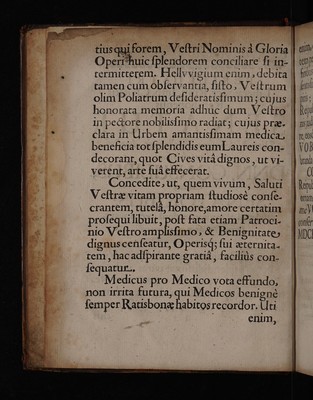 tius qui forem, Vestri Nominis à Gloria
Operi huic splendorem conciliare si in-
termitterem. Hellvvigium enim, debita
tamen cum observantia, sisto, Vestrum
olim Poliatrum desideratissimum; cujus
honorata memoria adhuc dum Vestro
in pectore nobilissimo radiat; cujus præ-
clara in Urbem amantissimam medica
beneficia tot splendidis eum Laureis con-
decorant, quot Cives vitâ dignos, ut vi-
verent, arte suâ effecerat.
Concedite, ut, quem vivum, Saluti
Vestræ vitam propriam studiosè conse-
crantem, tutelâ, honore, amore certatim
prosequi libuit, post fata etiam Patroci-
nio Vestro amplissimo, & Benignitate
dignus censeatur, Operisq; sui æternita-
tem, hac adspirante gratiâ, faciliùs con-
sequatur.
Medicus pro Medico vota effundo,
non irrita futura, qui Medicos benignè
semper Ratisbonæ habitos recordor. Uti
enim,